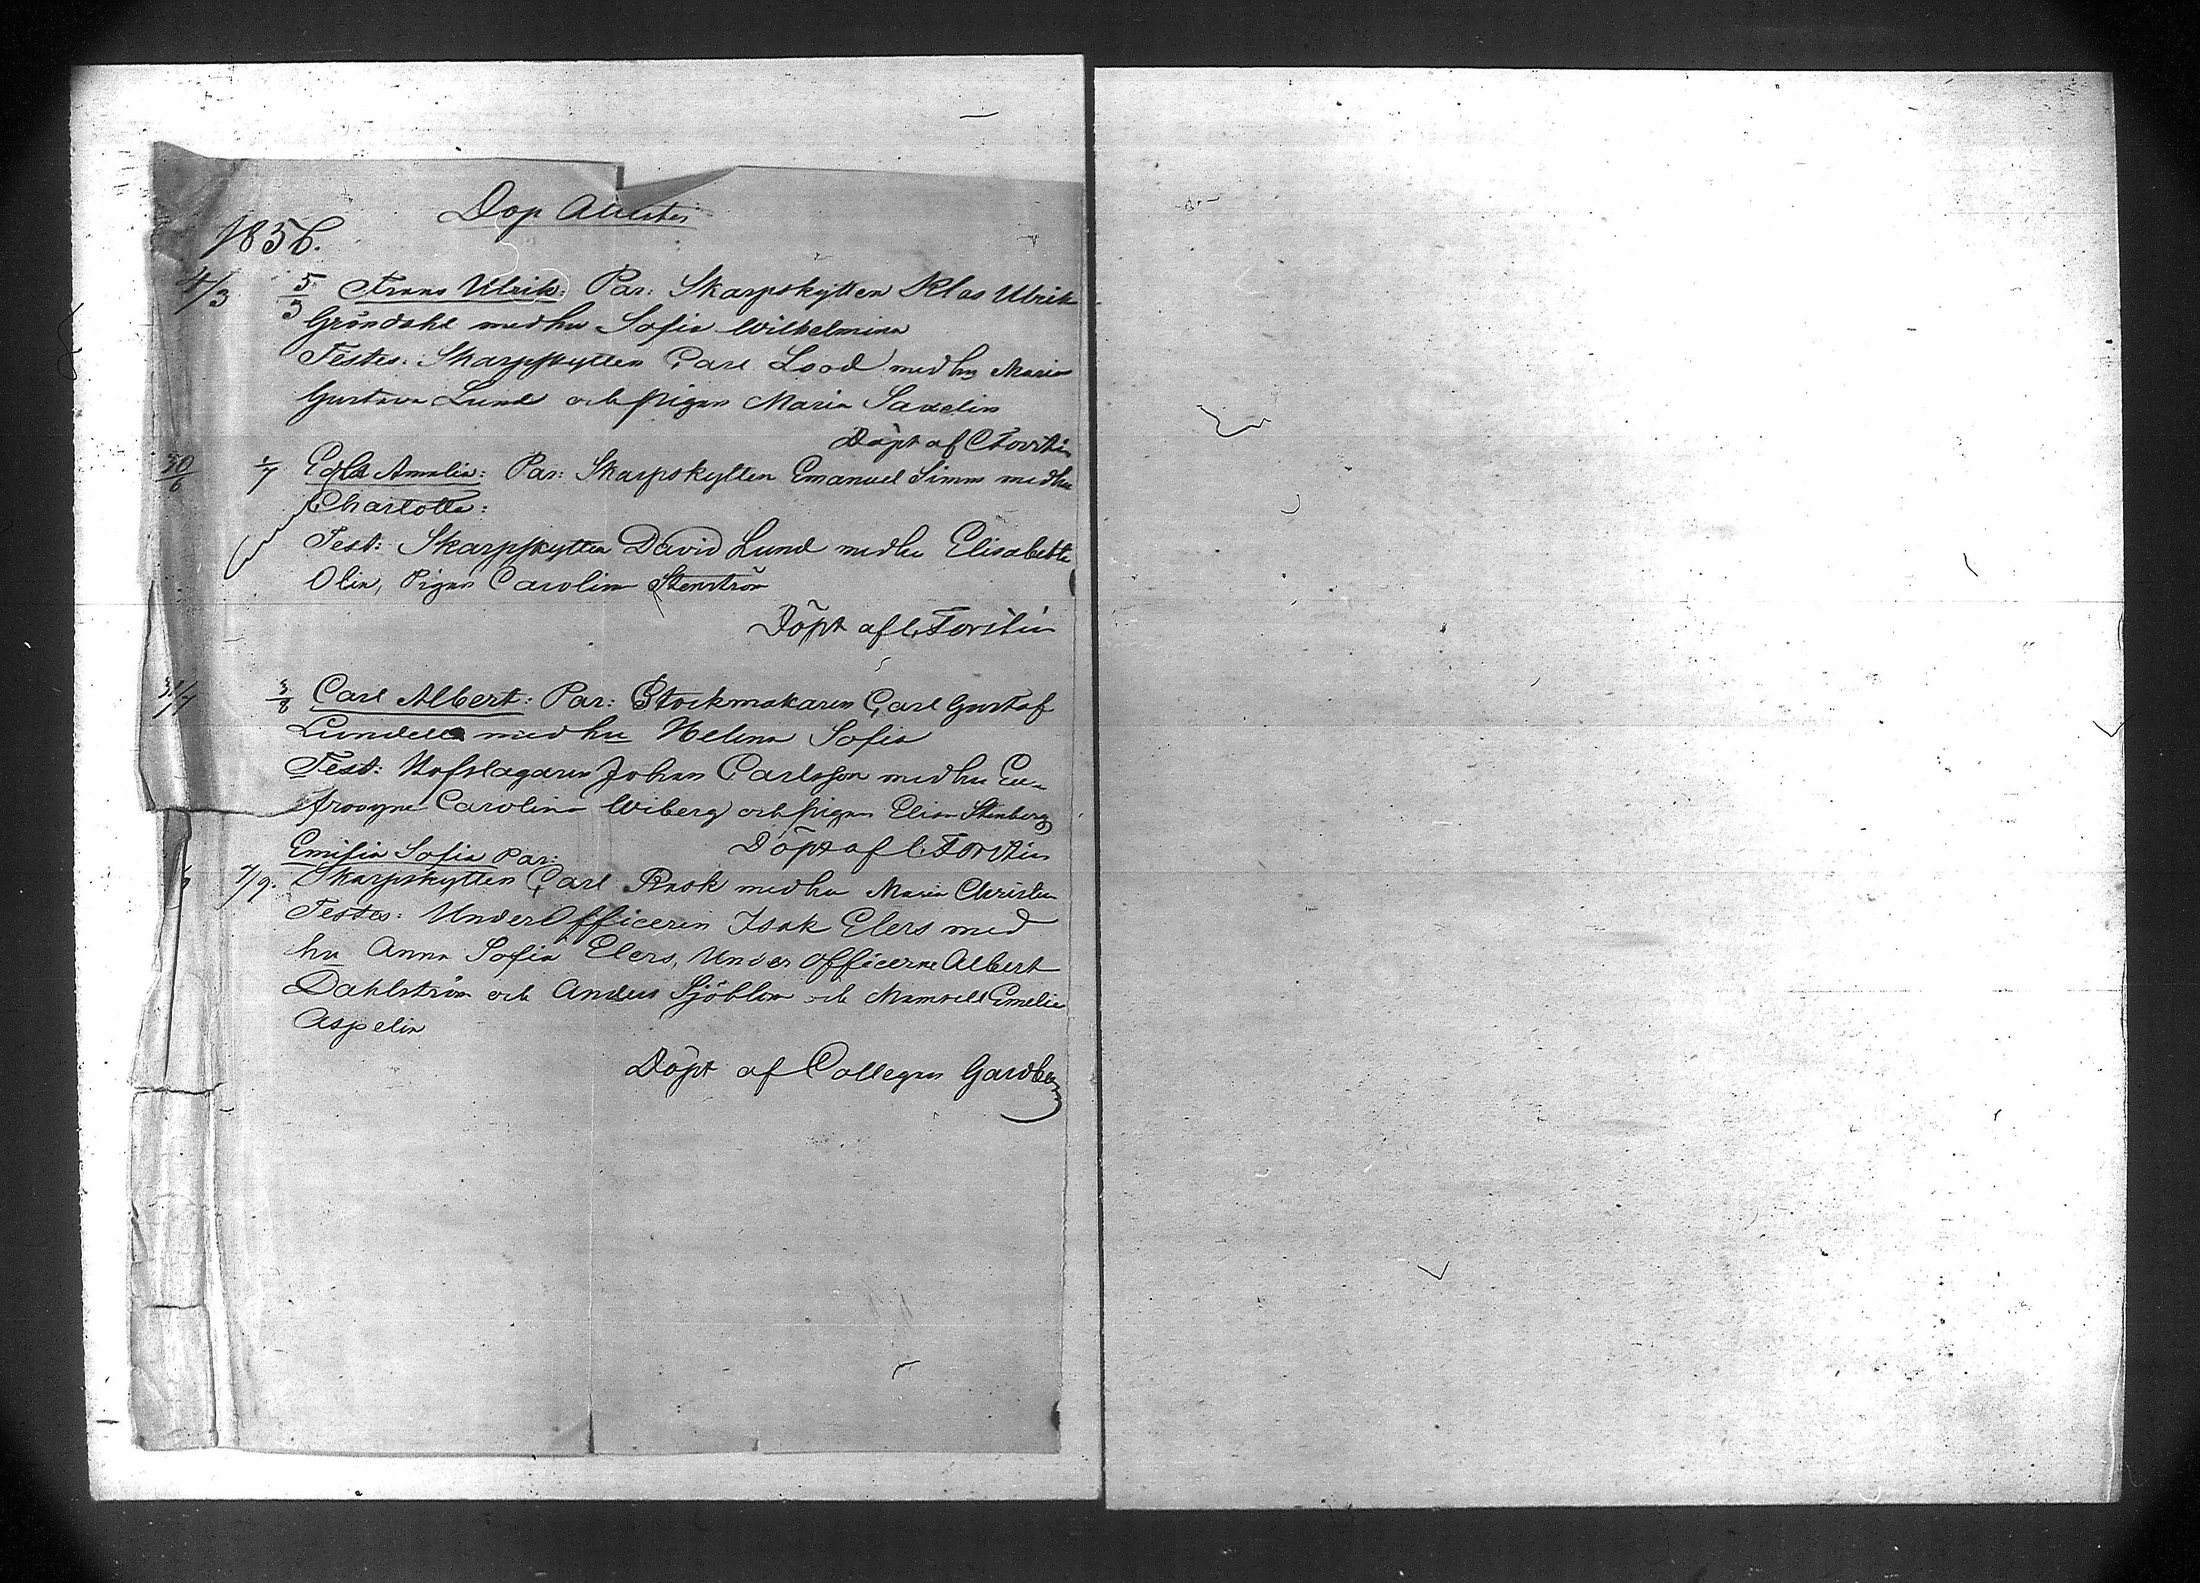 Dop Attester
1856.
4/3 5/3 Frans Ulrik: Par: Skarpskytten Klas Ulrik
Gröndahl med hu Sofia Wilhelmina
Testes: Skarpskytten Carl Lood med hu Maria
Gustava Lund och pigan Maria Savelin
Döpt af C Forstin
30/6 1/7 Amalia: Par: Skarpskytten Emanuel Simm med hu
Charlotta:
Test: Skarpskytten David Lund med hu Elisabeth
Olin, Pigan Carolina Stenström
Döpt af C. Forstin
31/7 3/8 Carl Albert: Par: Stockmakaren Carl Gustaf
Lundell med hu Helena Sofia
Test: Hofslagaren Johan Carlsson med hu Eu-
frosyne Carolina Wiberg och pigan Elisa Stenberg
Döpt af C. Forstin
Emilia Sofia Par:
7/9. Skarpskytten Carl Rask med hu Maria Christin
Testes: UnderOfficeren Isak Elers med
hu Anna Sofia Elers, Under officerne Albert
Dahlström och Anders Sjöblom och Mamsell Emelie
Aspelin
Döpt af Collegan Gardberg